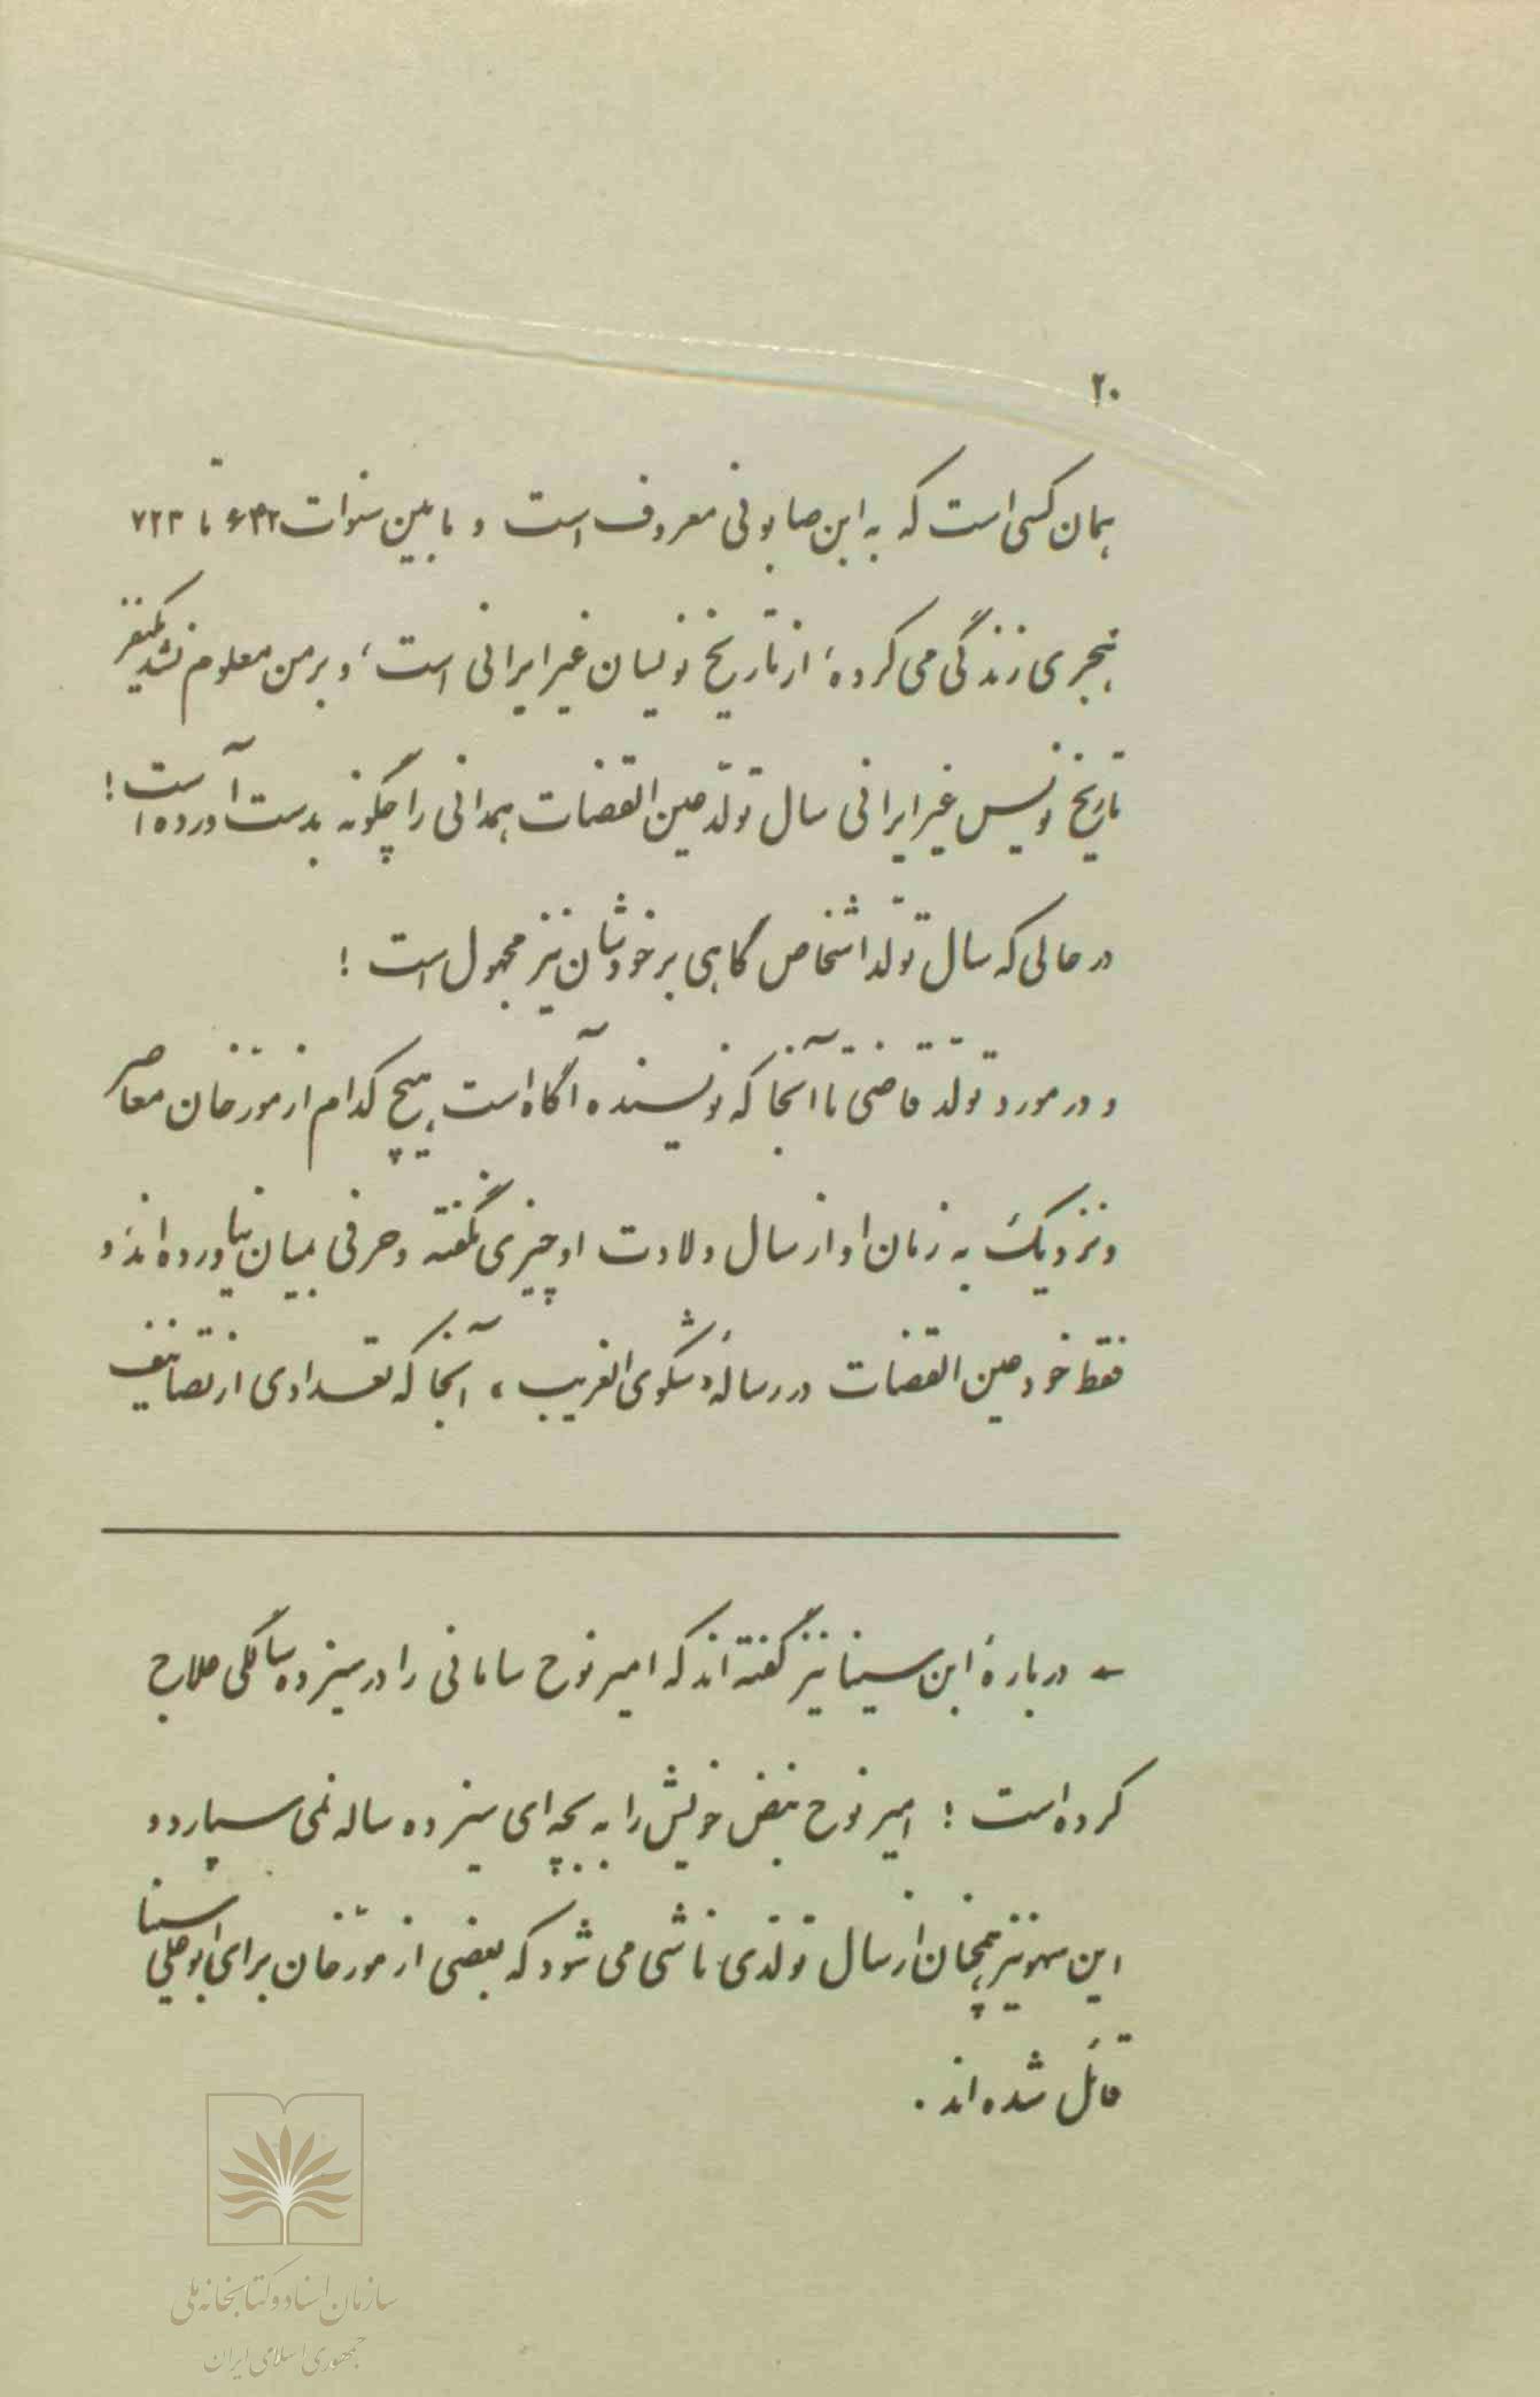 ۲۰
همان کسی است که به ابن صابونی معروف است و مابین سنوات ۶۴۲ تا ۷۲۳
هجری زندگی می کرده، از تاریخ نویسان غیر ایرانی است، و بر من معلوم نشد یکنفر
تاریخ نویس غیر ایرانی سال تولّد عین القضات همدانی را چگونه بدست آورده است!
در حالی که سال تولّد اشخاص گاهی بر خودشان نیز مجهول است !
و در مورد تولّد قاضی تا آنجا که نویسنده آگاه است هیچ کدام از مورخان معاصر
و نزدیک به زمان او از سال ولادت او چیزی نگفته و حرفی بمیان نیاورده اند و
فقط خود عین القضات در رسالهٔ «شکوی الغریب» آنجا که تعدادی از تصانیف
← دربارهٔ ابن سینا نیز گفته اند که امیر نوح سامانی را در سیزده سالگی علاج
کرده است ؛ امیر نوح نبض خویش را به بچه ای سیزده ساله نمی سپارد و
این سهو نیز همچنان از سال تولّدی ناشی می شود که بعضی از مورّخان برای ابوعلی سینا
قائل شده اند .
سازمان اسناد و کتابخانه ملی
جمهوری اسلامی ایران